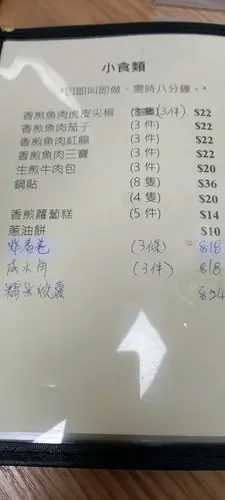 小食類
*因即叫即做、需時八分鐘。*
香煎魚肉虎皮尖椒 (3件) $22
香煎魚肉茄子 (3件) $22
香煎魚肉紅腸 (3件) $22
香煎魚肉三寶 (3件) $22
生煎牛肉包 (3件) $20
鍋貼 (8隻) $36
(4隻) $20
香煎蘿蔔糕 (5件) $14
蔥油餅 $10
炸春卷 (3條) $18
咸水角 (3件) $18
糯米燒賣 $24